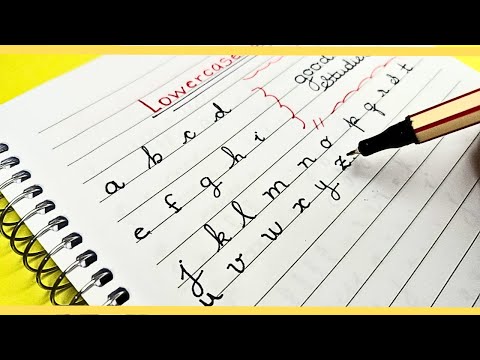 Lowercase
good
Studie
a b c d
e f g h i
j k l m n o p q r s t
u v w x y z